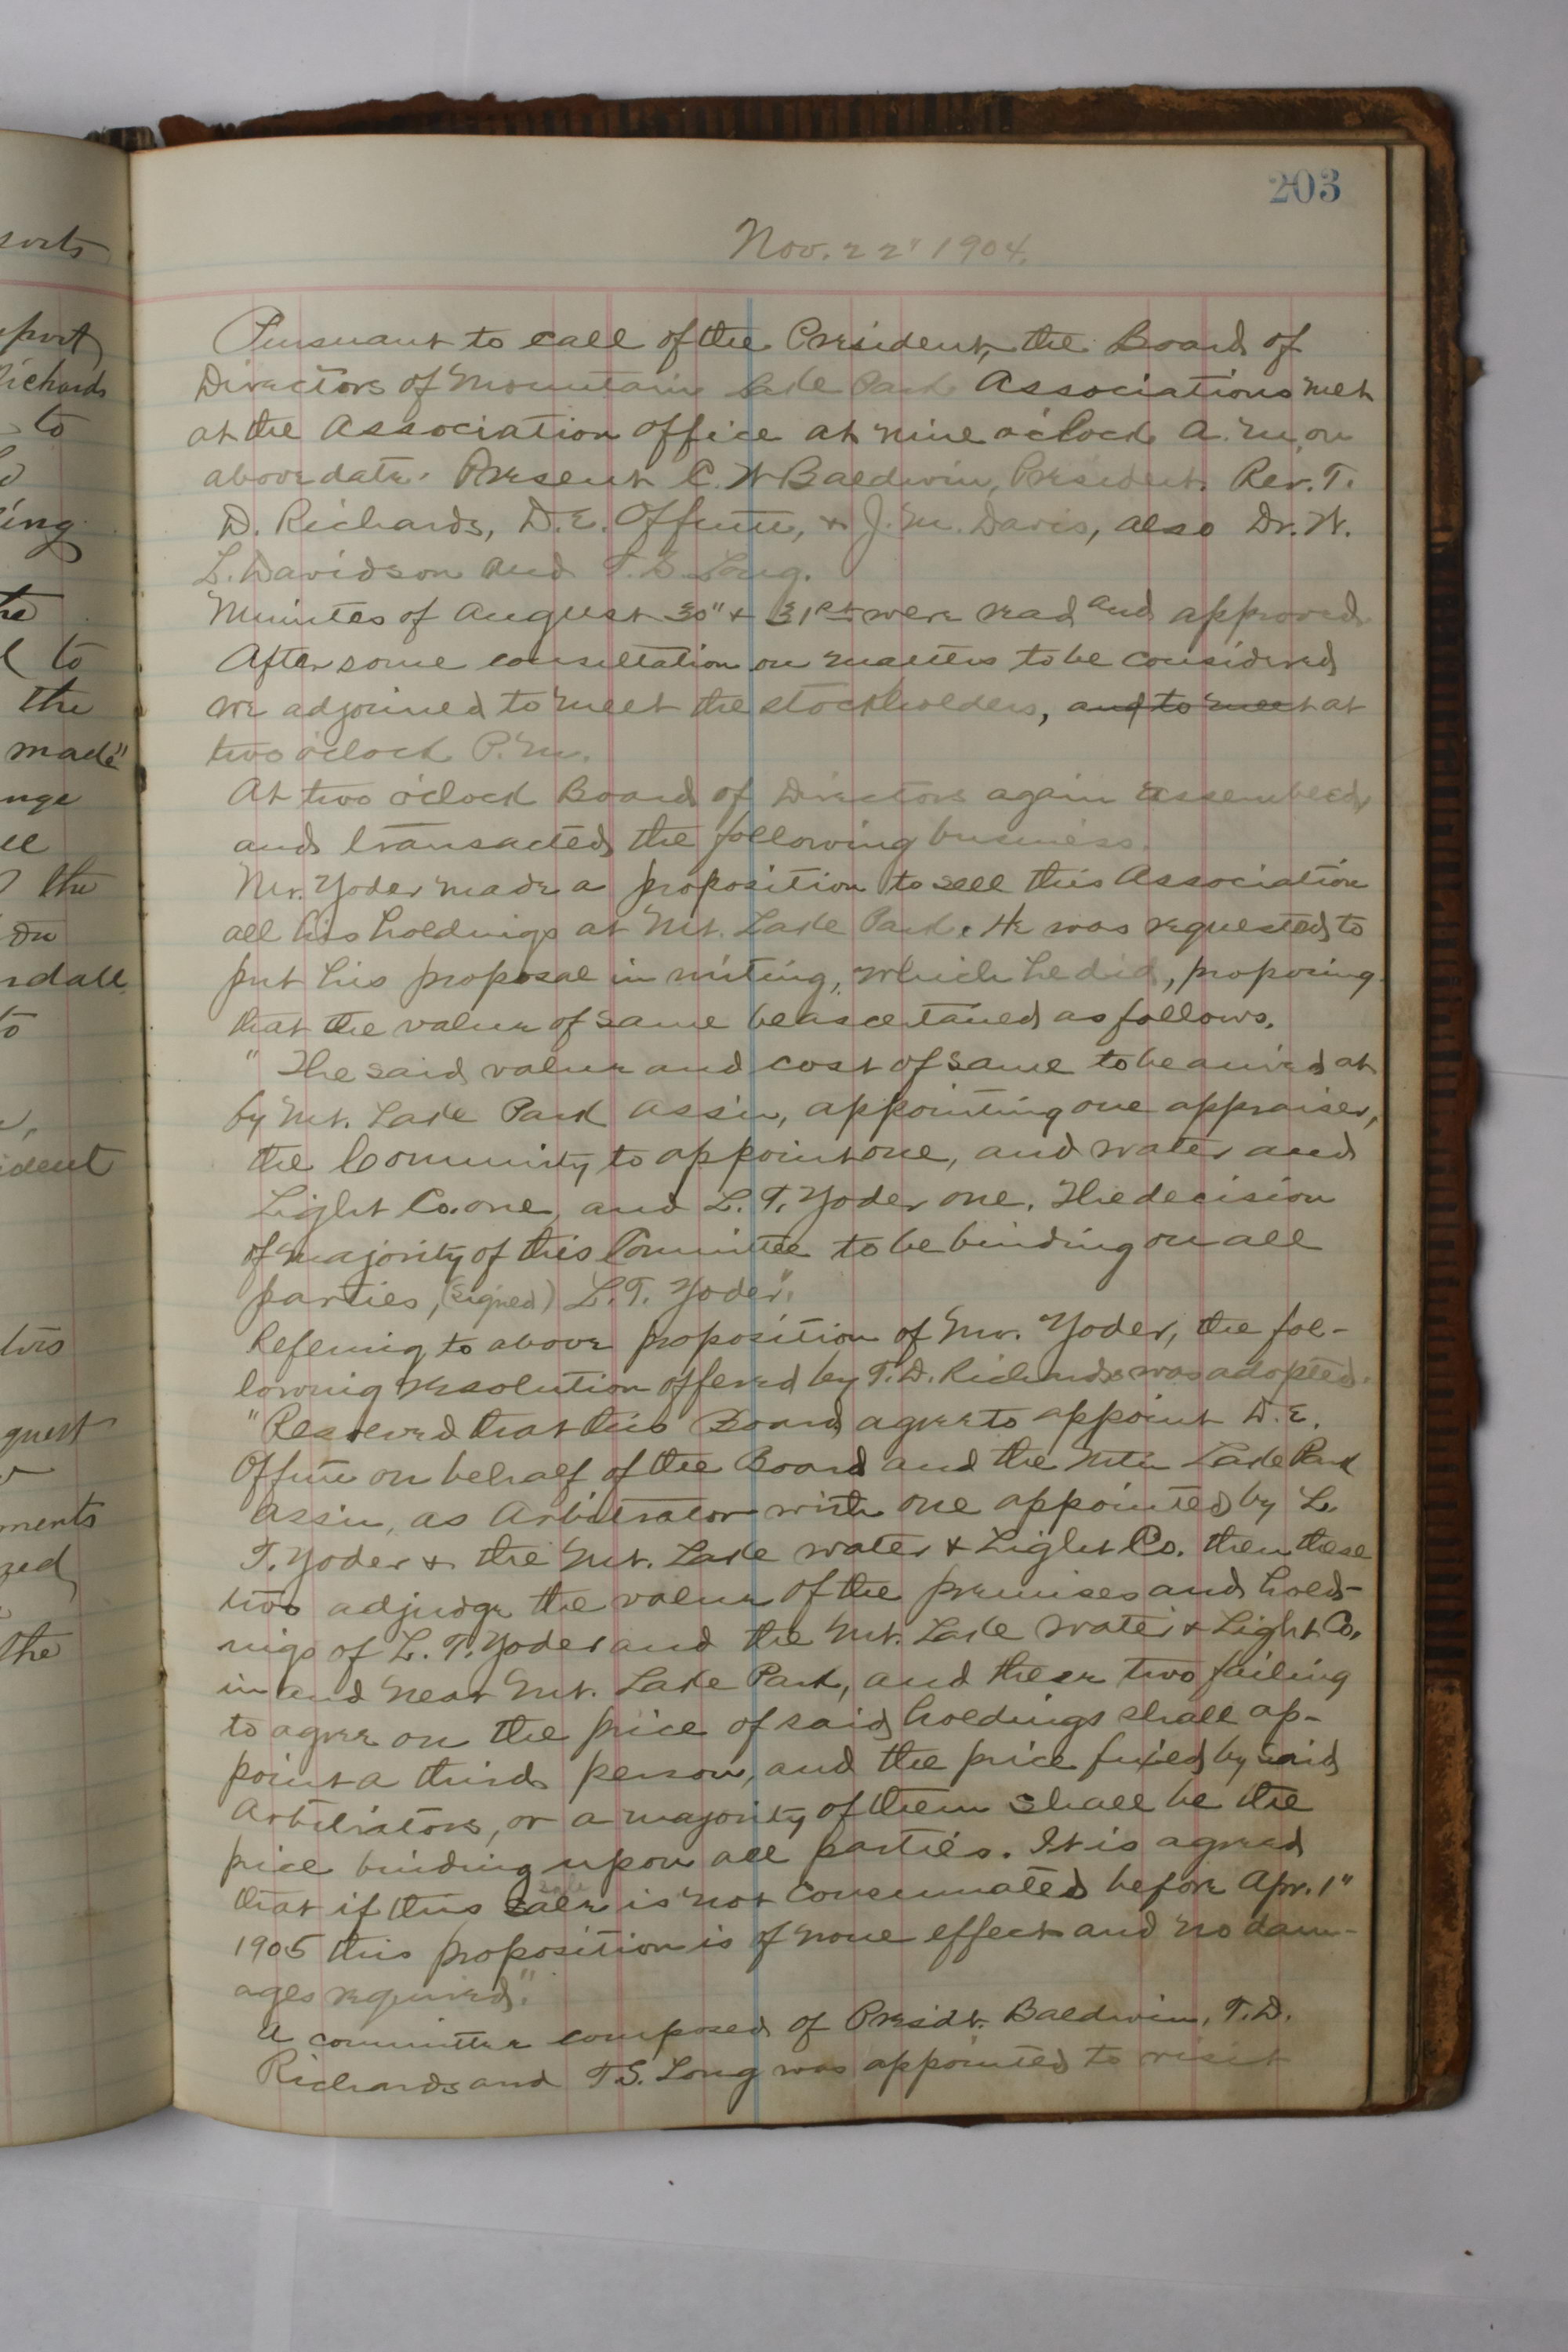 203
Nov. 22" 1904.
Pursuant to call of the President, the Board of
Directors of Mountain Lake Park Associations met
at the Association office at nine o'clock A.M, on
above date. Present C. W Baldwin, President. Rev. T.
D. Richards, D. E. Offutt, & J. M. Davis, also Dr. W.
L. Davidson and T. S. Long.
Minutes of August 30" & 31st were read and approved.
After some consultation on matters to be considered
we adjorined to meet the stockholders, and to meet at
two o'clock P.M.
At two o'clock Board of Directors again assembled,
and transacted the following business.
Mr. Yoder made a proposition to sell this Association
all his holdings at Mt. Lake Park. He was requested to
put his proposal in writing, which he did, proposing
that the value of same be ascertained as follows.
"The said value and cost of same to be arrived at
by Mt. Lake Park Ass'n, appointing one appraiser,
the Community to appoint one, and water and
Light Co. one, and L. T. Yoder one. The decision
of majority of this Committee to be binding on all
parties, (signed) L. T. Yoder".
Referring to above proposition of Mr. Yoder, the fol-
lowing resolution offered by T. D. Richards was adopted.
"Resolved that this Board agree to appoint D. E.
Offutt on behalf of the Board and the Mtn Lake Park
Assin, as Arbitrator with one appointed by L.
T. Yoder & the Mt. Lake water & Light Co. then these
two adjudge the value of the premises and hold-
ings of L. T. Yoder and the Mt. Lake Water & Light Co.
in and near Mt. Lake Park, and these two failing
to agree on the price of said holdings shall ap-
point a third person, and the price fixed by said
Arbitrators, or a majority of them shall be the
price binding upon all parties. It is agreed
that if this sale is not consummated before Apr. 1"
1905 this proposition is of none effect and no dam-
ages required."
A committee composed of Presidt. Baldwin, T. D.
Richards and T.S. Long was appointed to visit